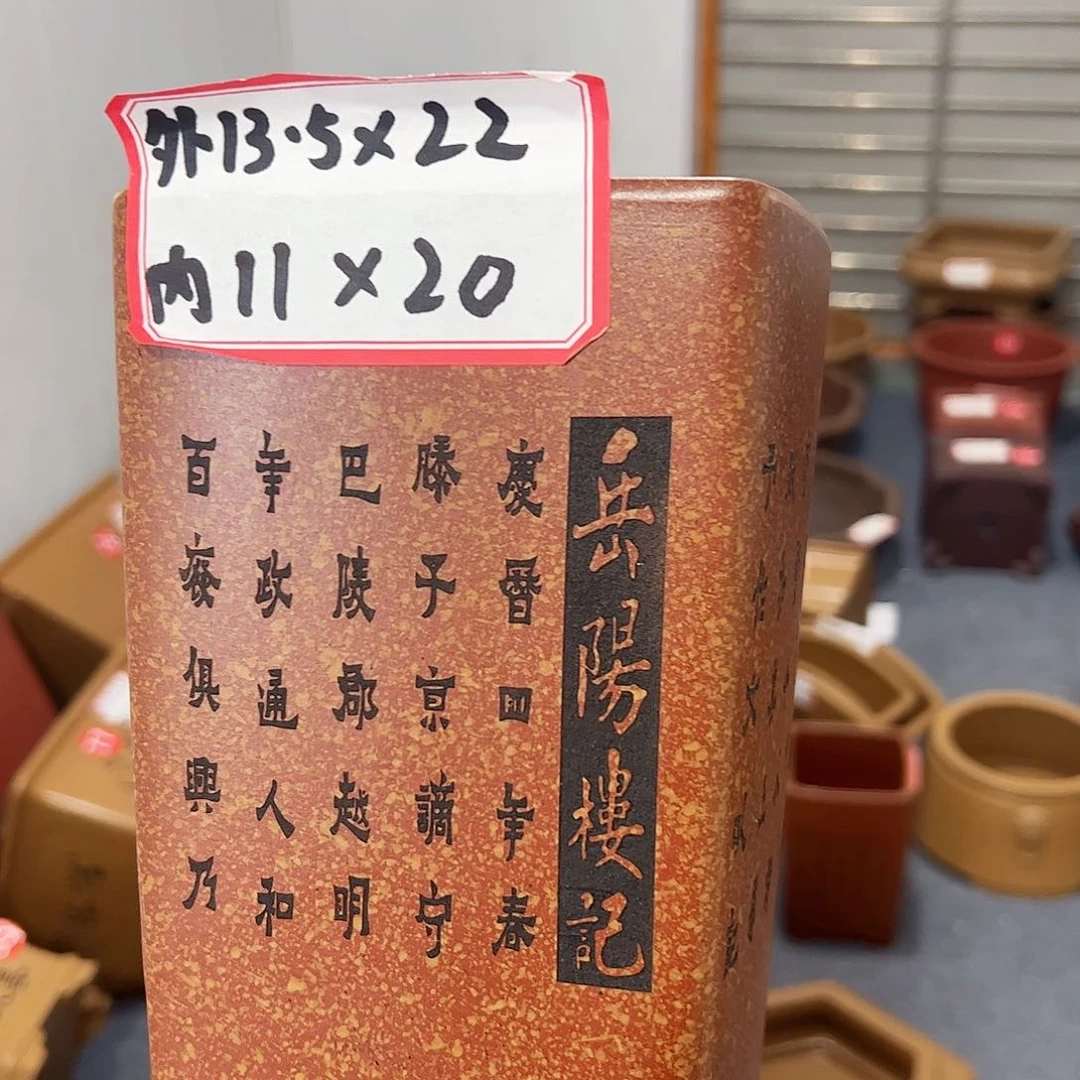 外13.5×22
内11×20
岳陽樓記
慶曆四年春
滕子京謫守
巴陵郡越明
年政通人和
百廢俱興乃